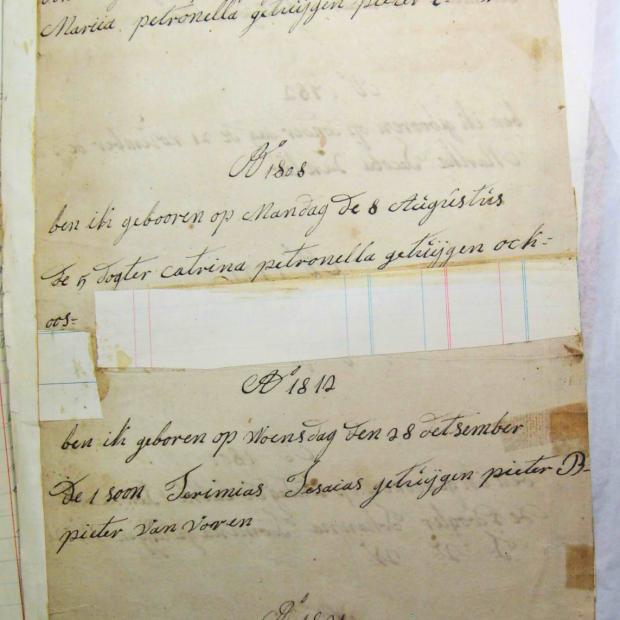 Mariia petronella getuijgen pieter
Ao 1808
ben ik gebooren op Mandag de 8 Augustus
de 5 dogter Catrina petronella getuijgen ock=
oos=
Ao 1812
ben ik geboren op Woensdag den 28 detsember
de 1 soon Jerimias Jesaias getuijgen pieter B=
pieter van voren